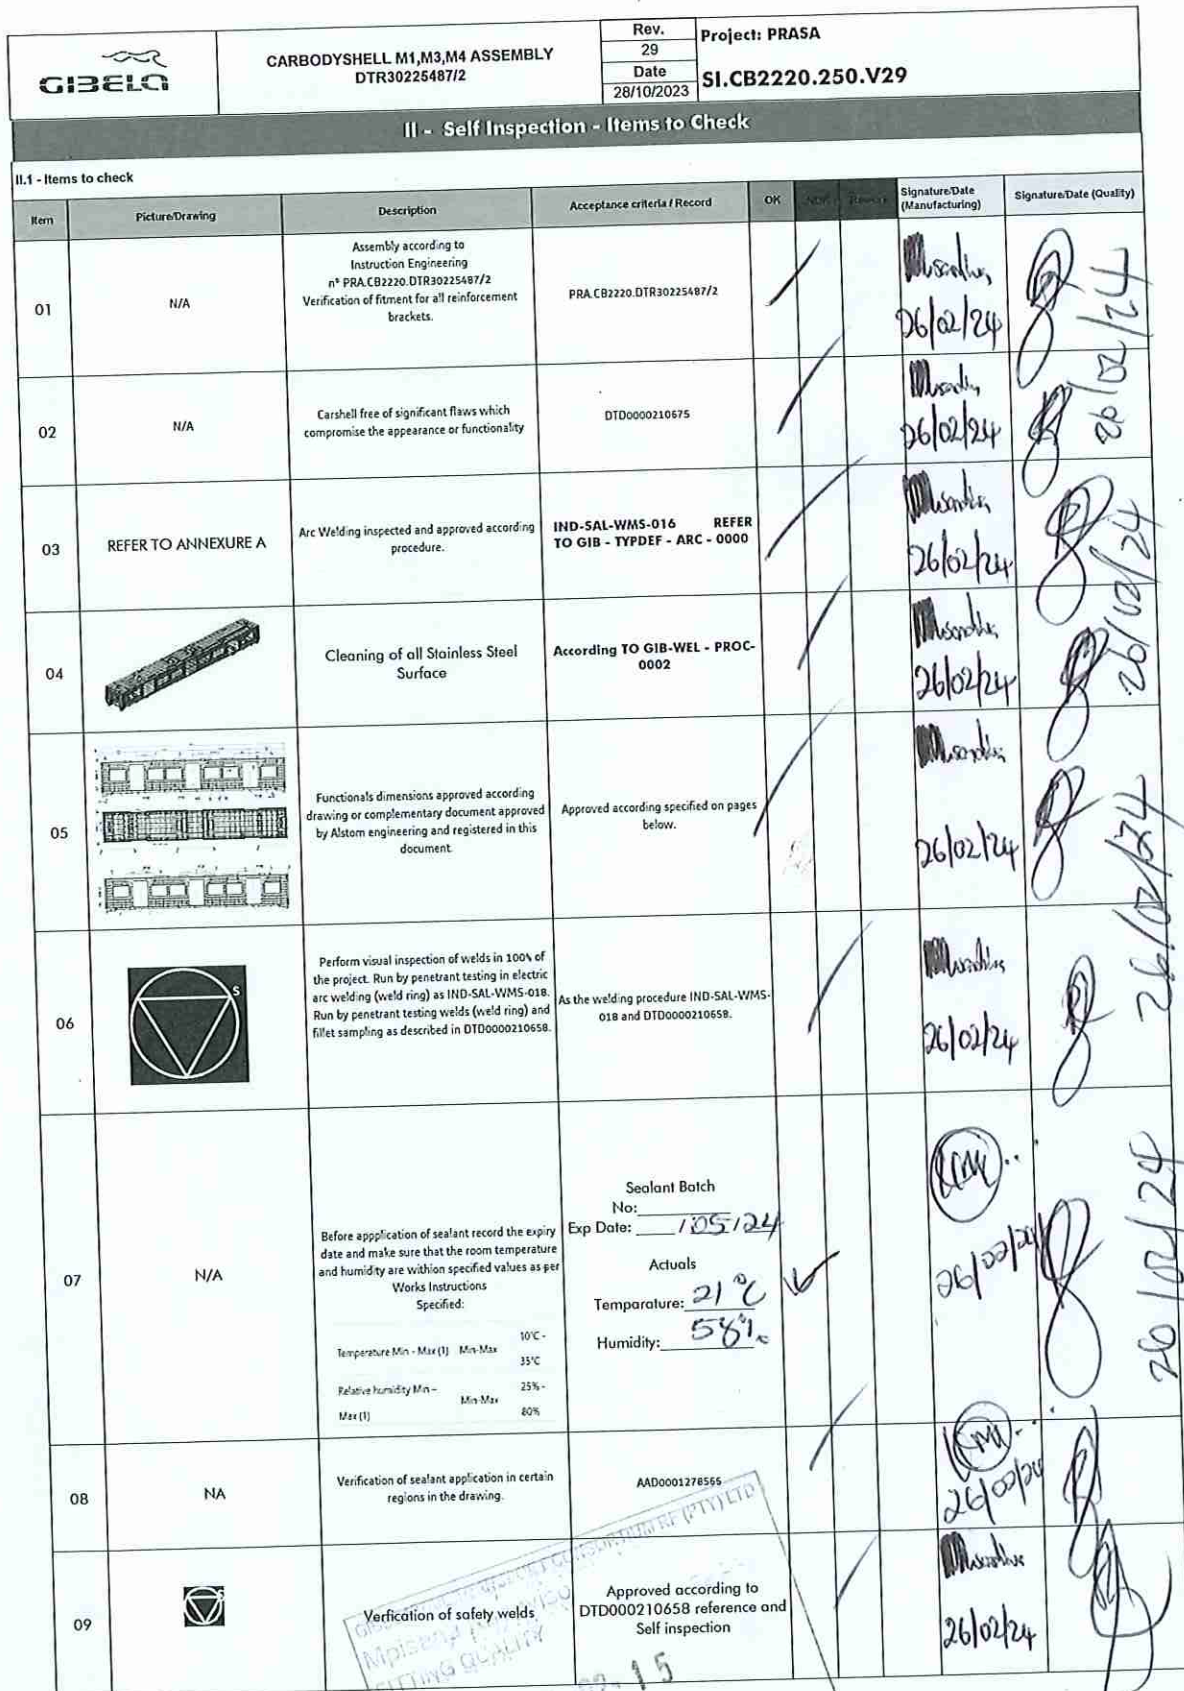 GIBELA
CARBODYSHELL M1,M3,M4 ASSEMBLY
DTR30225487/2
Rev.
29
Date
28/10/2023
Project: PRASA
SI.CB2220.250.V29
II - Self Inspection - Items to Check
II.1 - Items to check
Item Picture/Drawing Description Acceptance criteria / Record OK Signature/Date (Manufacturing) Signature/Date (Quality)
01
N/A
Assembly according to
Instruction Engineering
n° PRA.CB2220.DTR30225487/2
Verification of fitment for all reinforcement
brackets.
PRA.CB2220.DTR30225487/2
26/02/24
26/02/24
02
N/A
Carshell free of significant flaws which
compromise the appearance or functionality
DTD0000210675
26/02/24
03
REFER TO ANNEXURE A
Arc Welding inspected and approved according
procedure.
IND-SAL-WMS-016 REFER
TO GIB - TYPDEF - ARC - 0000
26/02/24
26/02/24
04
Cleaning of all Stainless Steel
Surface
According TO GIB-WEL - PROC-
0002
26/02/24
05
Functionals dimensions approved according
drawing or complementary document approved
by Alstom engineering and registered in this
document.
Approved according specified on pages
below.
26/02/24
26/02/24
06
S
Perform visual inspection of welds in 100% of
the project. Run by penetrant testing in electric
arc welding (weld ring) as IND-SAL-WMS-018.
Run by penetrant testing welds (weld ring) and
fillet sampling as described in DTD0000210658.
As the welding procedure IND-SAL-WMS-
018 and DTD0000210658.
26/02/24
07
N/A
Before appplication of sealant record the expiry
date and make sure that the room temperature
and humidity are withion specified values as per
Works Instructions
Specified:
Temperature Min - Max (1) Min-Max 10°C -
35°C
Relative humidity Min –
Max (1) Min-Max 25% -
80%
Sealant Batch
No:
Exp Date: /05/24
Actuals
Temparature: 21°C
Humidity: 58%
26/02/24
26/02/24
08
NA
Verification of sealant application in certain
regions in the drawing.
AAD0001278565
26/02/24
09
S
Verfication of safety welds
Approved according to
DTD000210658 reference and
Self inspection
26/02/24
QUALITY
15